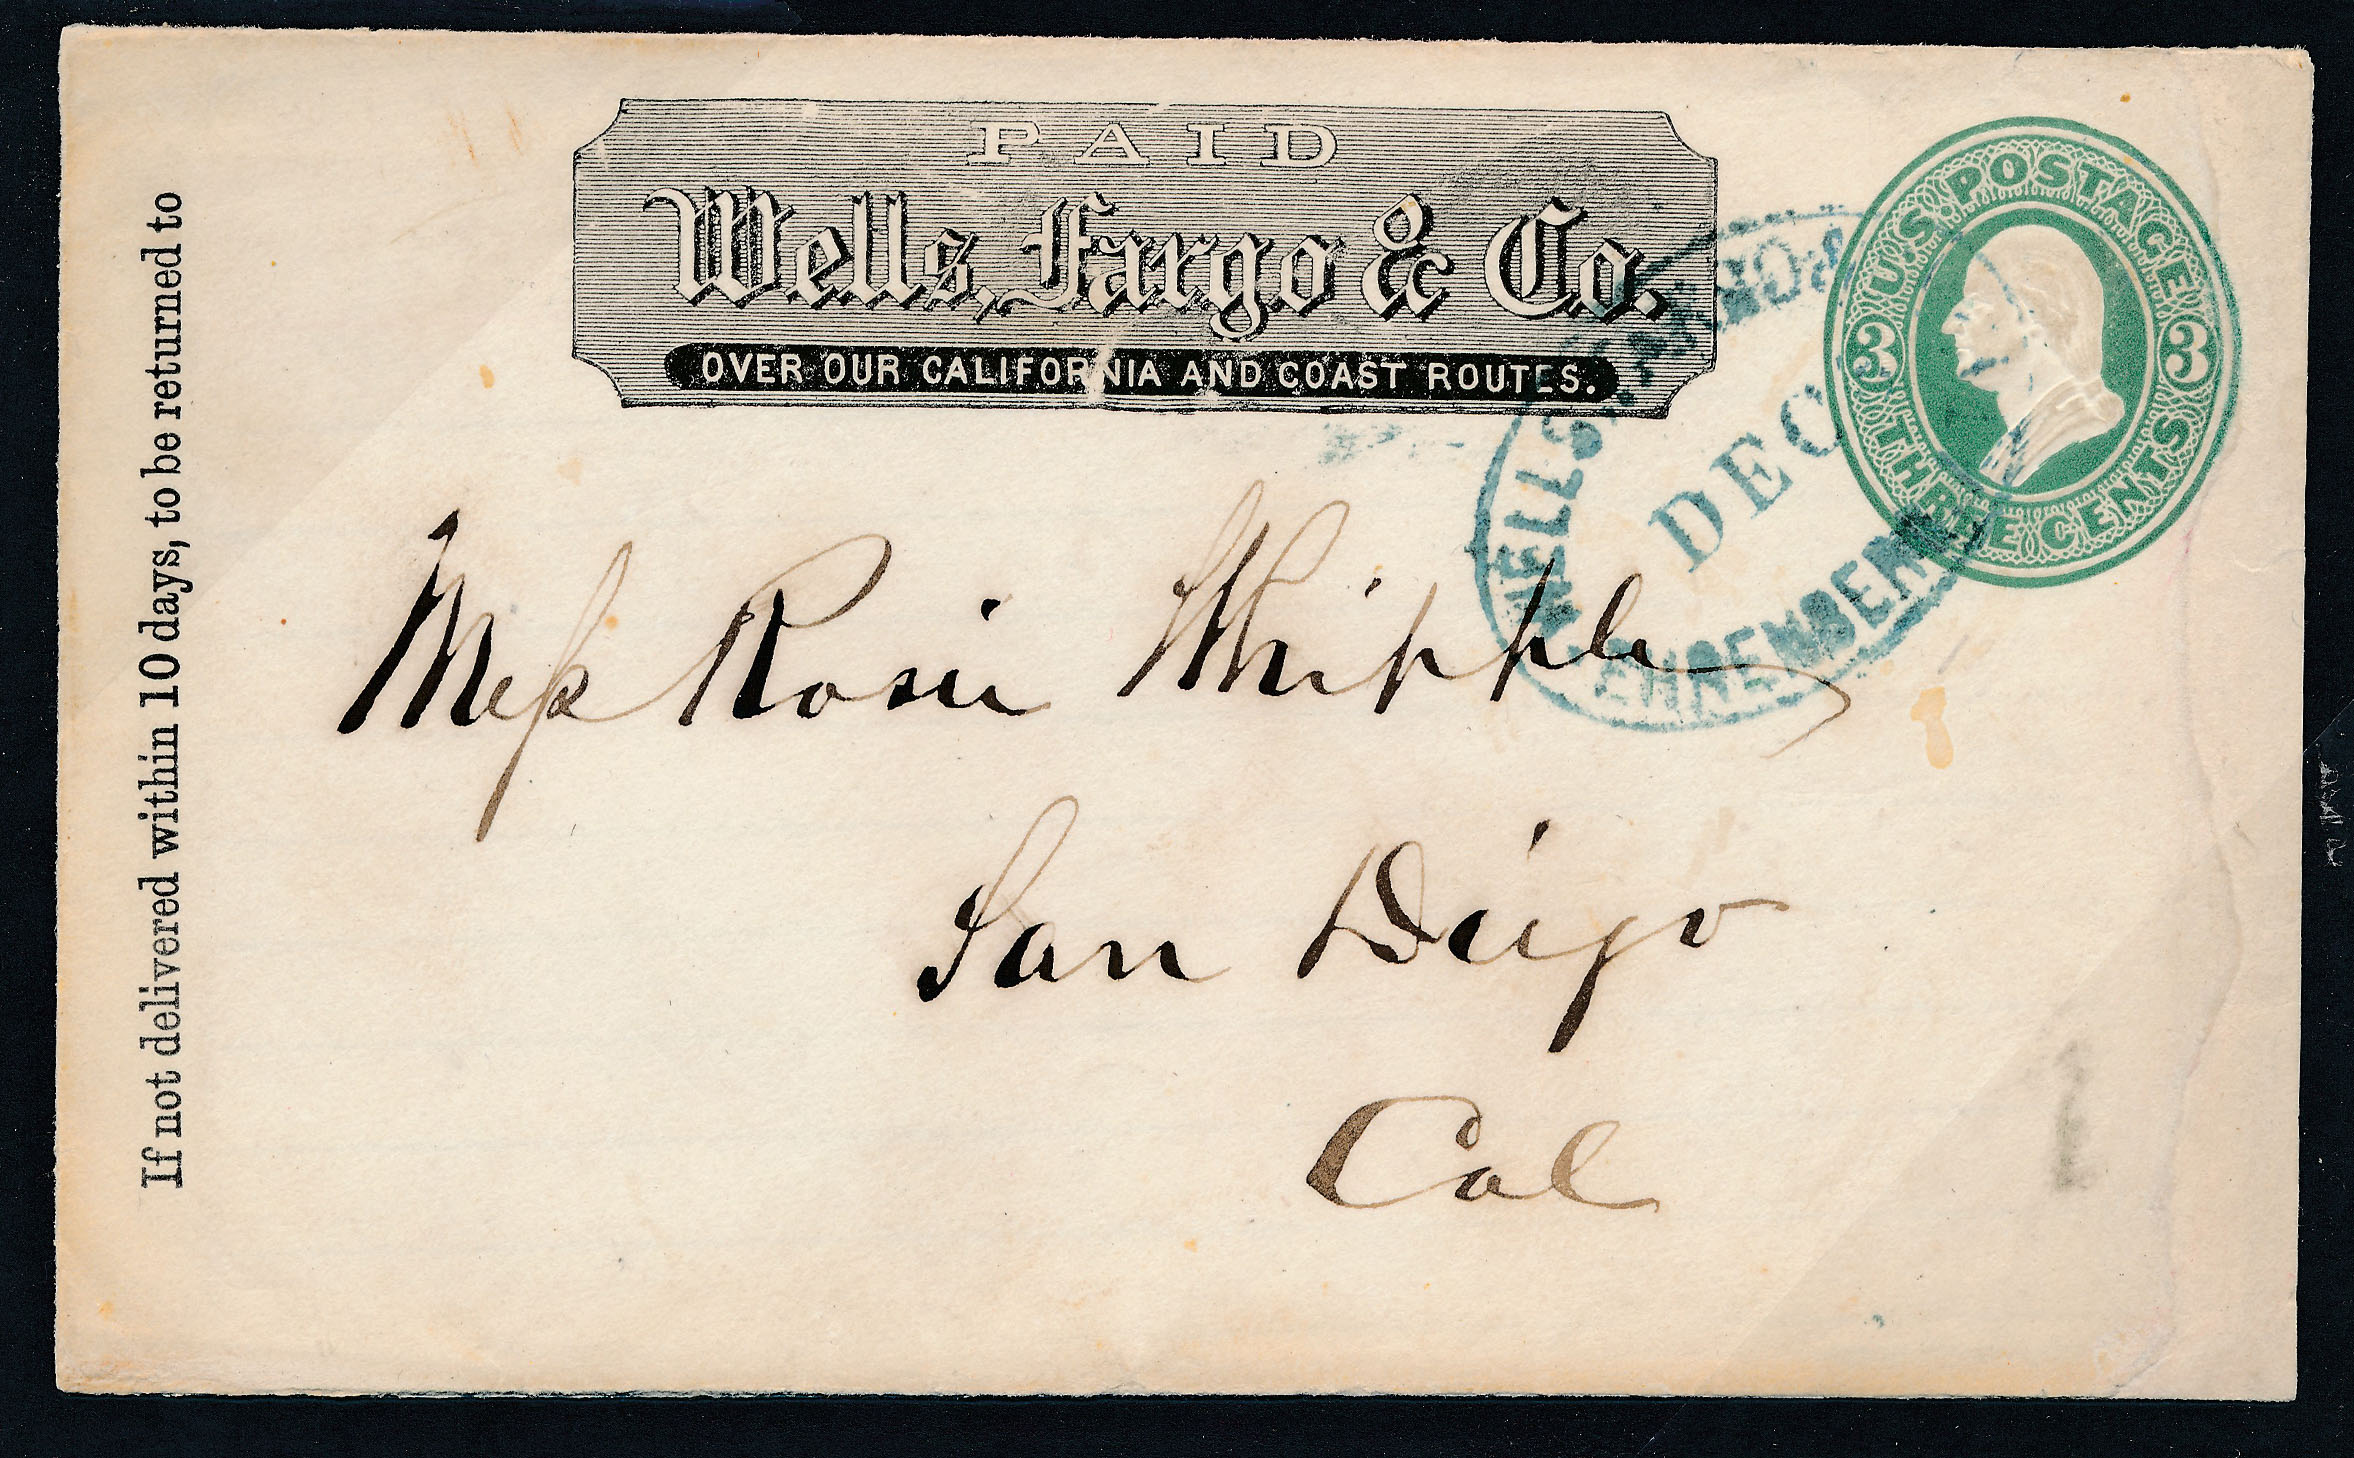 PAID
Wells, Fargo & Co.
OVER OUR CALIFORNIA AND COAST ROUTES.
U.S. POSTAGE
3 3
THREE CENTS
WELLS FARGO &CO
DEC
EHRENBERG
If not delivered within 10 days, to be returned to
Miss Rosie Whipple
San Diego
Cal